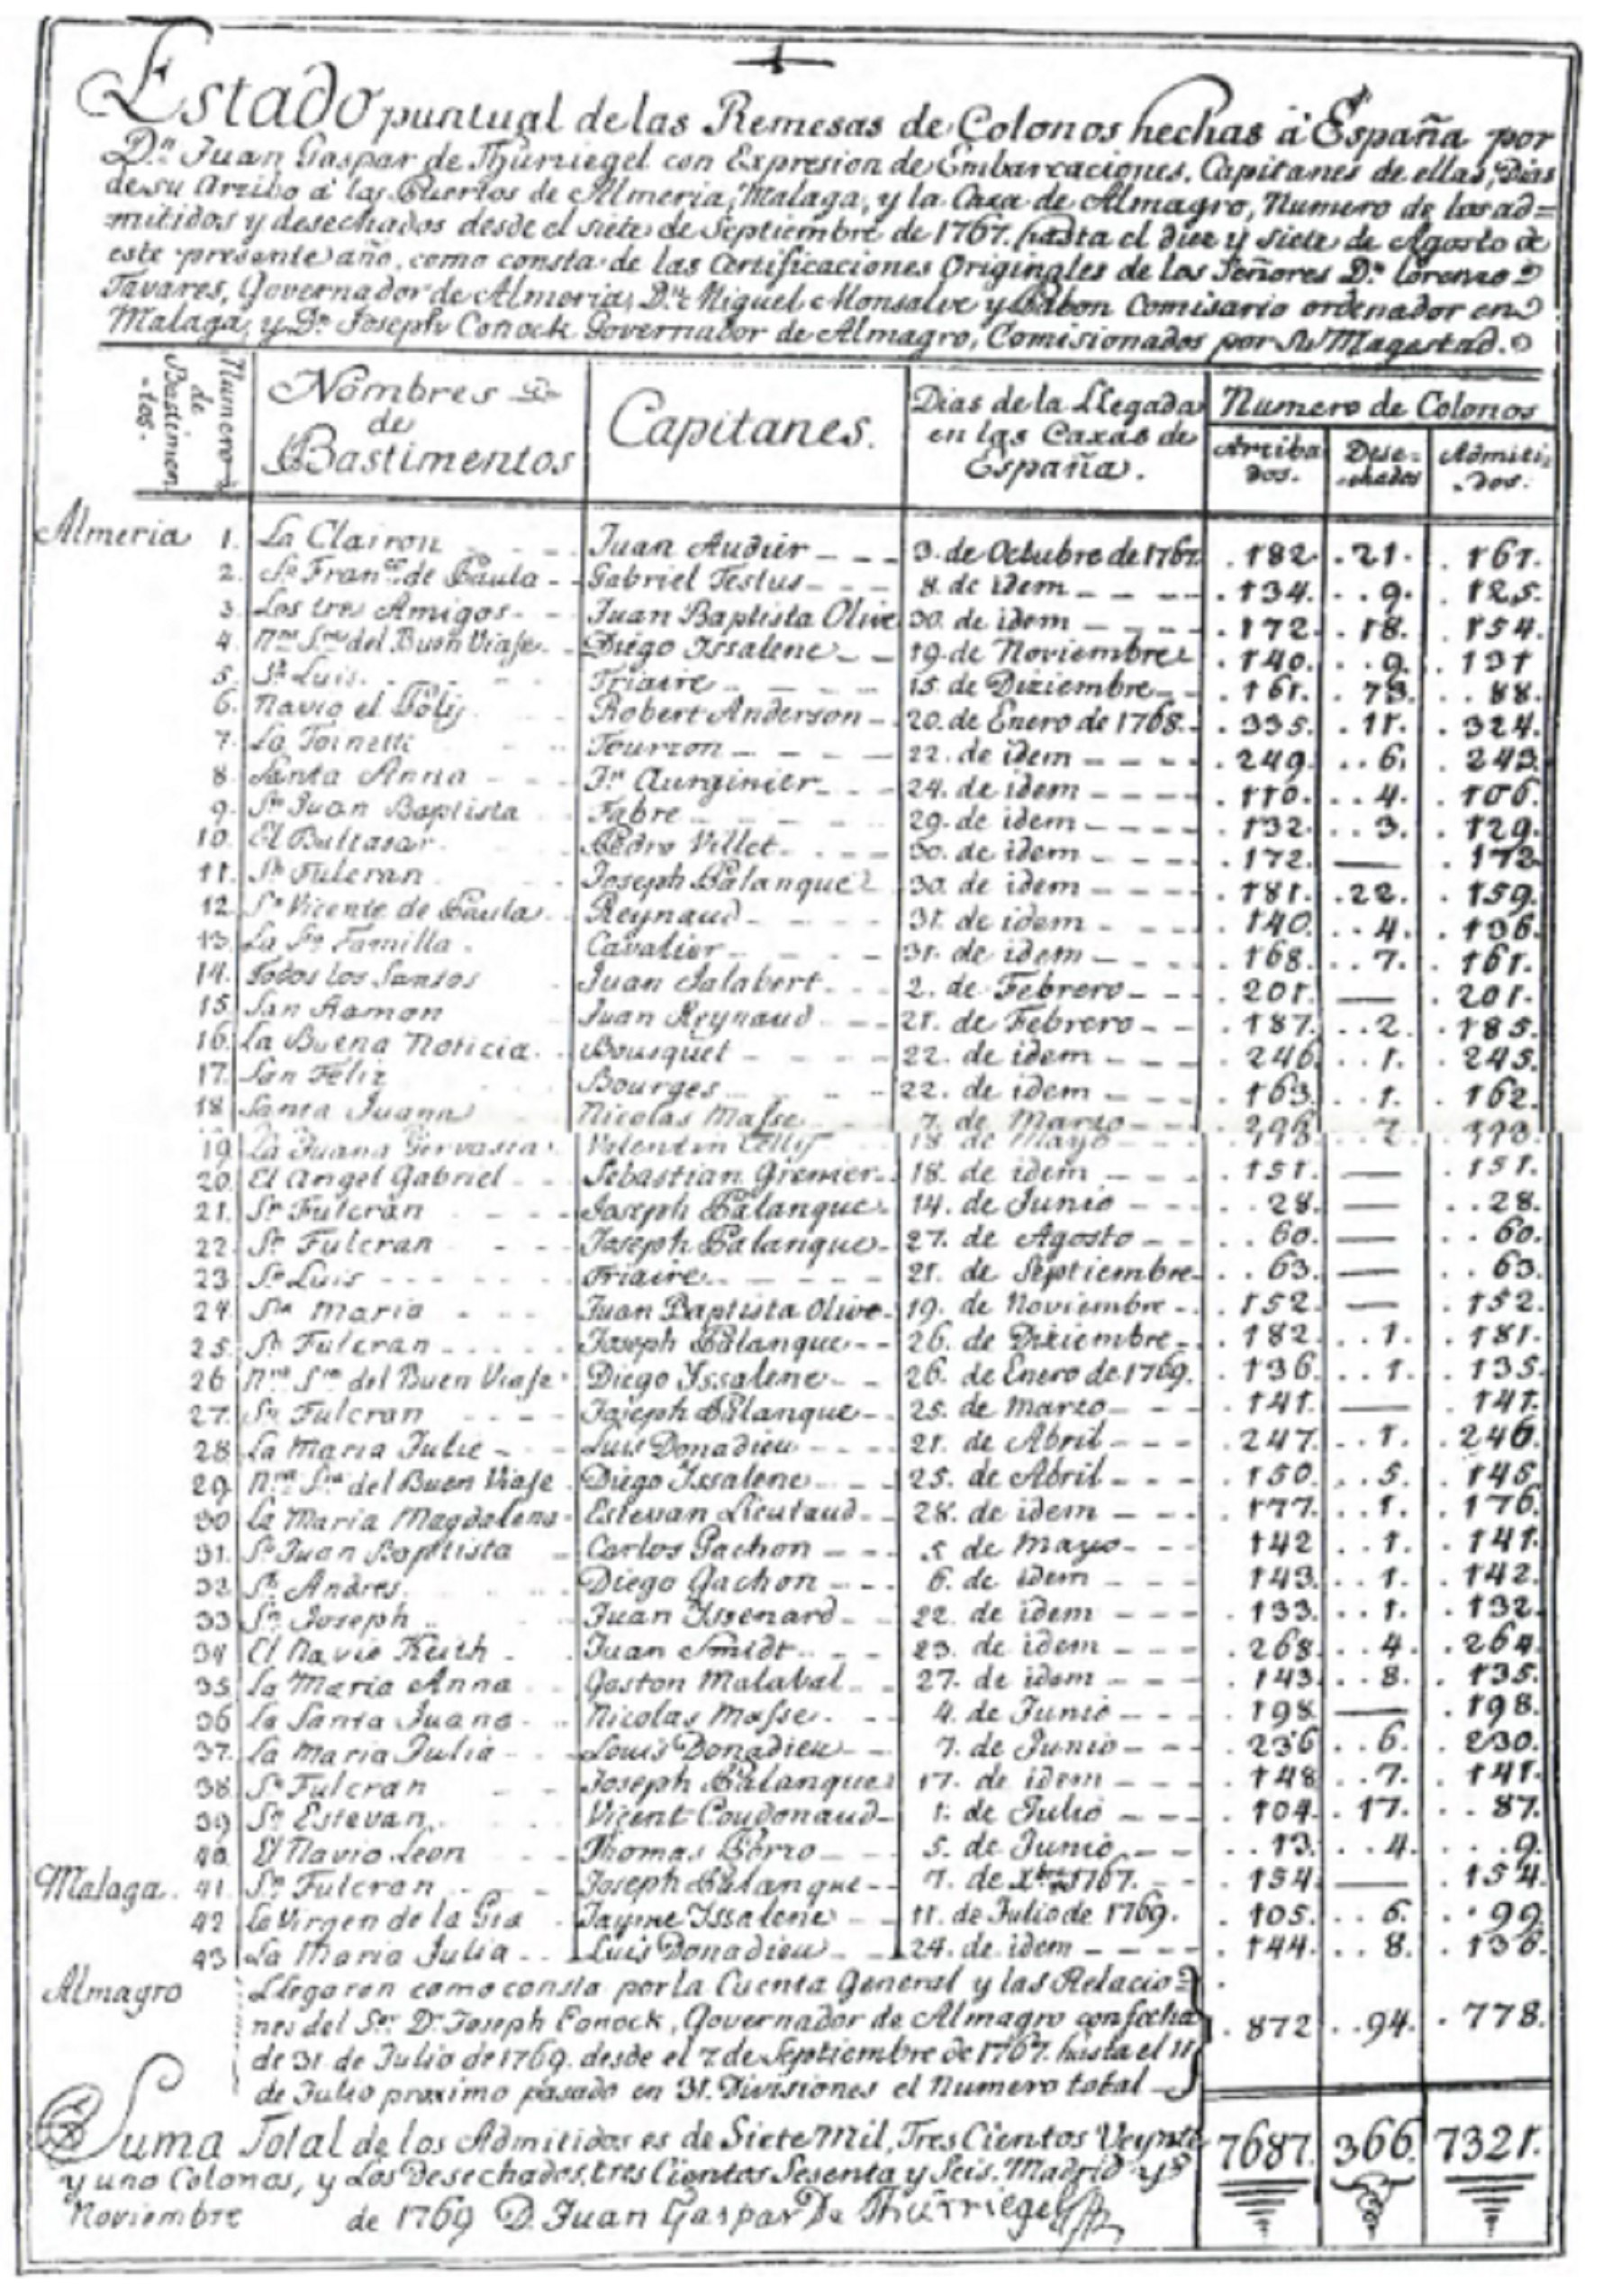 Estado puntual de las Remesas de Colonos hechas à España por
Dn. Juan Gaspar de Thürriegel con Expresion de Embarcaciones, Capitanes de ellas, Dias
de su Arribo à los Puertos de Almeria, Malaga, y la Caxa de Almagro, Numero de los ad=
mitidos y desechados desde el siete de Septiembre de 1767. hasta el diez y siete de Agosto de
este presente año, como consta de las Certificaciones Originales de los Señores Dn. Lorenzo
Tavares, Governador de Almeria, Dn. Miguel Monsalve y Pabon Comisario ordenador en
Malaga, y Dn. Joseph Conock Governador de Almagro, Comisionados por Su Magestad.
Numero de Bastimen-tos.
Nombres de Bastimentos
Capitanes.
Dias de la Llegada en las Caxas de España.
Numero de Colonos
Arribados. Dese-chados Admiti-dos.
Almeria 1. La Clairon Juan Audier 3. de Octubre de 1767 182. 21. 161.
2. Sn Franco. de Paula Gabriel Testus 8. de idem 134. 9. 125.
3. Los tres Amigos Juan Baptista Olive 30. de idem 172. 18. 154.
4. Nra Sra del Buen Viaje Diego Issalene 19. de Noviembre 140. 9. 131
5. Sn Luis. Triaire 15. de Diziembre 161. 73. 88.
6. Navio el Polij Robert Anderson 20. de Enero de 1768. 335. 11. 324.
7. La Toinetti Tourzon 22. de idem 249. 6. 243.
8. Santa Anna Jn Aurginier 24. de idem 110. 4. 106.
9. Sn Juan Baptista Fabre 29. de idem 132. 3. 129.
10. El Baltasar Pedro Villet 30. de idem 172. — 172
11. Sn Fulcran Joseph Palanque 30. de idem 181. 22. 159.
12. Sn Vicente de Paula Reynaud 31. de idem 140. 4. 136.
13. La Sa Familla Cavalier 31. de idem 168. 7. 161.
14. Todos los Santos Juan Jalabert 2. de Febrero 201. — 201.
15. San Ramon Juan Reynaud 21. de Febrero 187. 2. 185.
16. La Buena Noticia Bousquet 22. de idem 246. 1. 245.
17. San Felix Bourges 22. de idem 163. 1. 162.
18 Santa Juana Nicolas Masse 7. de Marzo
19. La Juana Gervasia Valentin 18 de Mayo
20. El Angel Gabriel Sebastian Grenier 18. de idem 151. — 151.
21. Sn Fulcran Joseph Palanque 14. de Junio 28. — 28.
22. Sn Fulcran Joseph Palanque 27. de Agosto 60. — 60.
23. Sn Luis Triaire 21. de Septiembre 63. — 63.
24. Sta Maria Juan Baptista Olive 19. de Noviembre 152. — 152.
25. Sn Fulcran Joseph Palanque 26. de Diziembre 182. 1. 181.
26. Nra Sra del Buen Viaje Diego Yssalene 26. de Enero de 1769. 136. 1. 135.
27. Sn Fulcran Joseph Palanque 25. de Marzo 141. — 141.
28. La Maria Julie Luis Donadieu 21. de Abril 247. 1. 246.
29. Nra Sra del Buen Viaje Diego Yssalene 25. de Abril 150. 5. 145.
30 La Maria Magdalena Estevan Lieutaud 28. de idem 177. 1. 176.
31. Sn Juan Baptista Carlos Gachon 5 de Mayo 142 1. 141.
32 Sn Andres. Diego Gachon 6. de idem 143. 1. 142.
33 Sn Joseph Juan Yssenard 22. de idem 133. 1. 132.
34 El Navio Keith Juan Smidt 23. de idem 268. 4. 264.
35. La Maria Anna Gaston Malabal 27. de idem 143. 8. 135.
36 La Santa Juana Nicolas Masse. 4. de Junio 198. — 198.
37. La Maria Julia Louis Donadieu 7. de Junio 236 6. 230.
38. Sn Fulcran Joseph Palanque 17. de idem 148 7. 141.
39. Sn Estevan Vicent Coudonaud 1. de Julio 104. 17. 87.
40. El Navio Leon Thomas Porro 5. de Junio 13. 4. 9.
Malaga. 41. Sn Fulcran Joseph Palanque 7. de Xbre 1767. 154. — 154.
42 La Virgen de la Gia Jayme Yssalene 11. de Julio de 1769. 105. 6. 99.
43 La Maria Julia Luis Donadieu 24. de idem 144. 8. 136.
Almagro Llegaron como consta por la Cuenta General y las Relacio=
nes del Sor. Dn Joseph Conock, Governador de Almagro con fecha
de 31. de Julio de 1769. desde el 7 de Septiembre de 1767. hasta el 11
de Julio proximo pasado en 31. Divisiones el Numero total 872 94. 778.
Suma Total de los Admitidos es de Siete Mil, Tres Cientos Veynte
y uno Colonos, y Los Desechados, tres Cientos Sesenta y Seis. Madrid y
Noviembre de 1769 D. Juan Gaspar De Thürriegel
7687. 366. 7321.